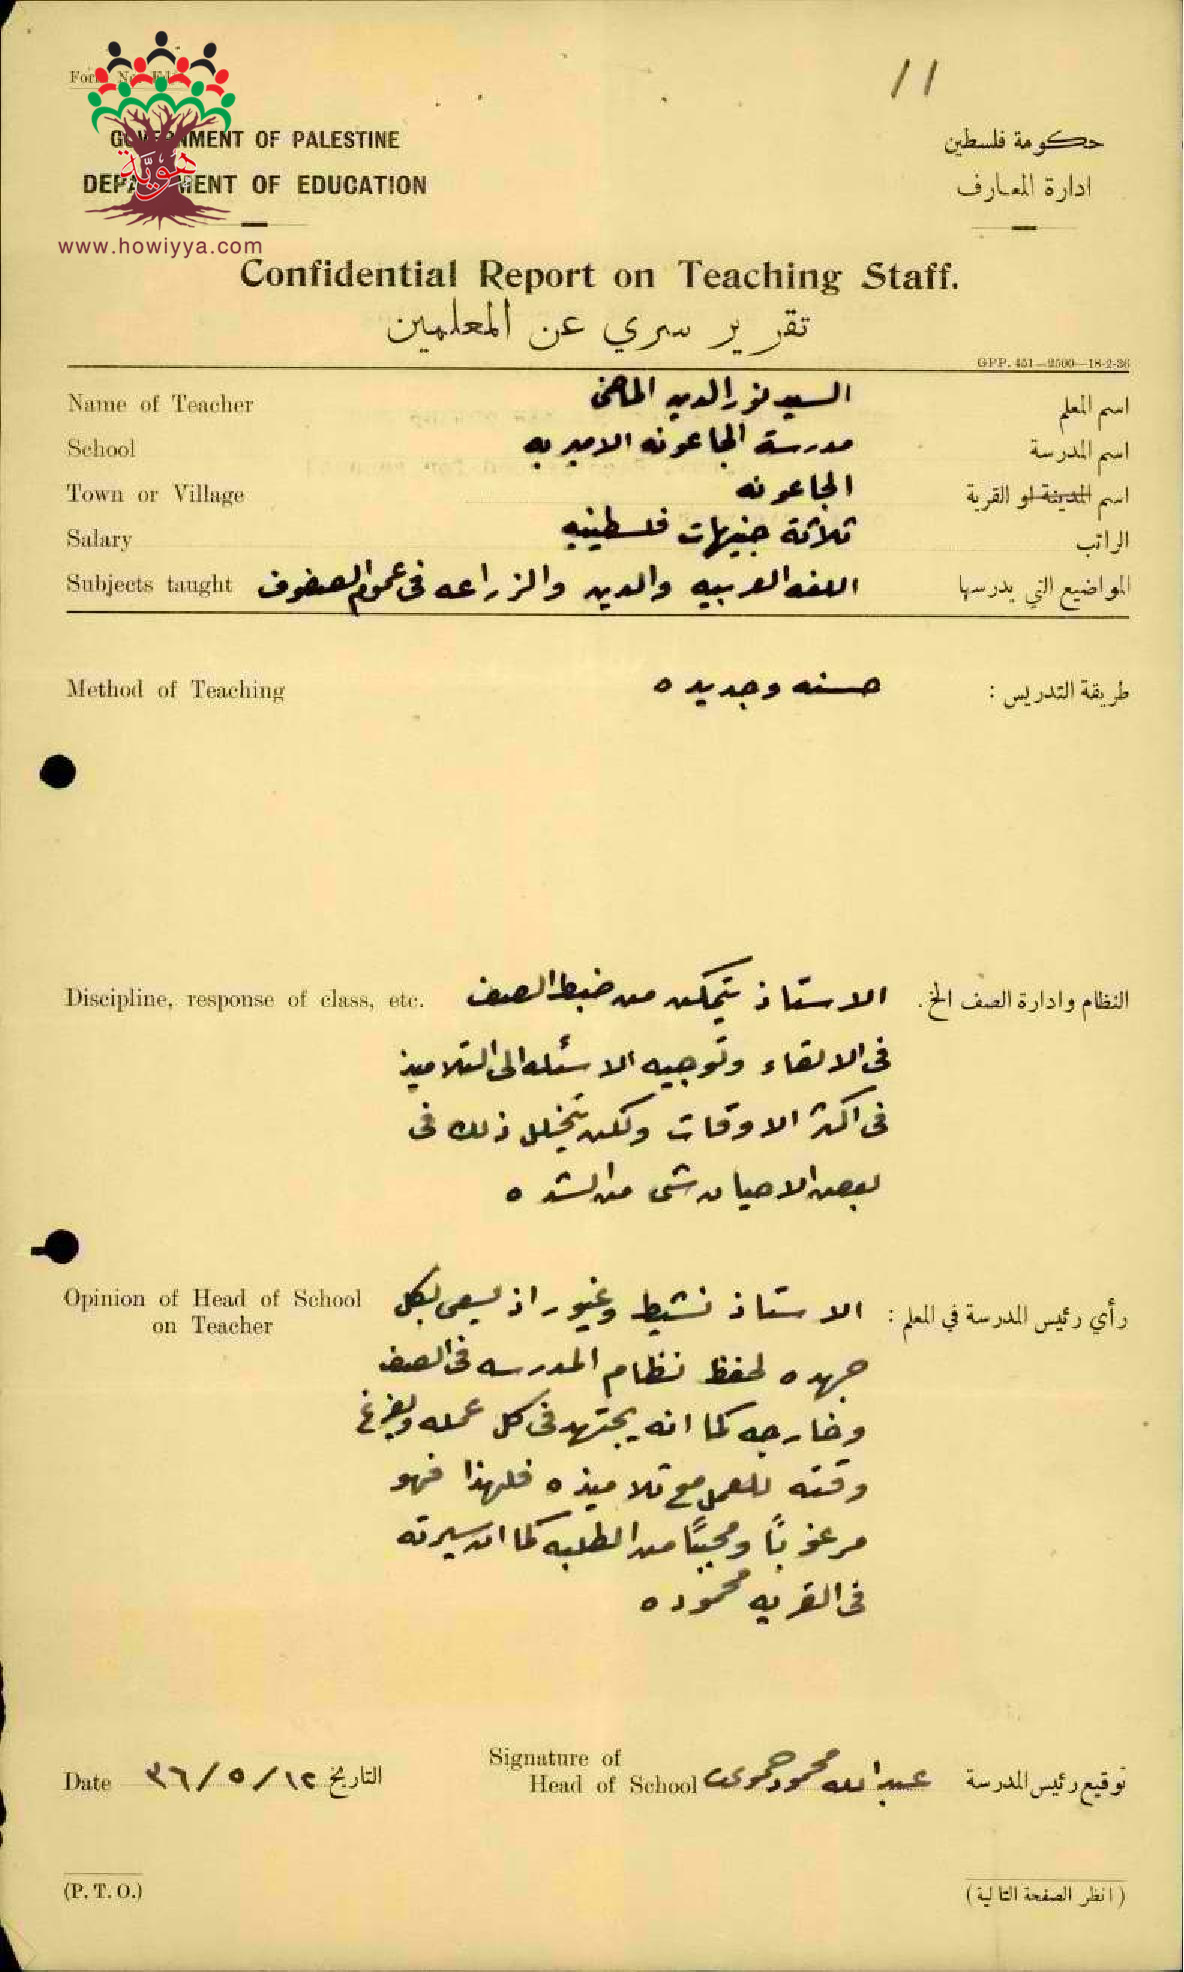 11
GOVERNMENT OF PALESTINE
حكومة فلسطين
DEPARTMENT OF EDUCATION
ادارة المعارف
هوية
www.howiyya.com
Confidential Report on Teaching Staff.
تقرير سري عن المعلمين
GPP. 451—2500—18-2-36
Name of Teacher السيد نور الدين اسم المعلم
School مدرسة الجاعونه الاميريه اسم المدرسة
Town or Village الجاعونه اسم المدينة او القرية
Salary ثلاثة جنيهات فلسطينيه الراتب
Subjects taught اللغه العربيه والدين والزراعه في عموم الصفوف المواضيع التي يدرسها
Method of Teaching حسنه وجديده طريقة التدريس :
Discipline, response of class, etc. الاستاذ يتمكن من ضبط الصف النظام وادارة الصف الخ.
في الالقاء وتوجيه الاسئله الى التلاميذ
في اكثر الاوقات ولكن يتخلل ذلك في
بعض الاحيان شى من الشده
Opinion of Head of School الاستاذ نشيط وغيور اذ يسعى بكل رأي رئيس المدرسة في المعلم :
on Teacher
جهده لحفظ نظام المدرسه في الصف
وخارجه كما انه يجتهد في كل عمله ويفرغ
وقته للعمل مع تلاميذه فلهذا فهو
مرغوبًا ومحببًا من الطلبه كما ان سيرته
في القريه محموده
Signature of
Date ٣٦/٥/١٢ التاريخ Head of School عبد الله محمود توقيع رئيس المدرسة
(P. T. O.) (انظر الصفحة التالية)